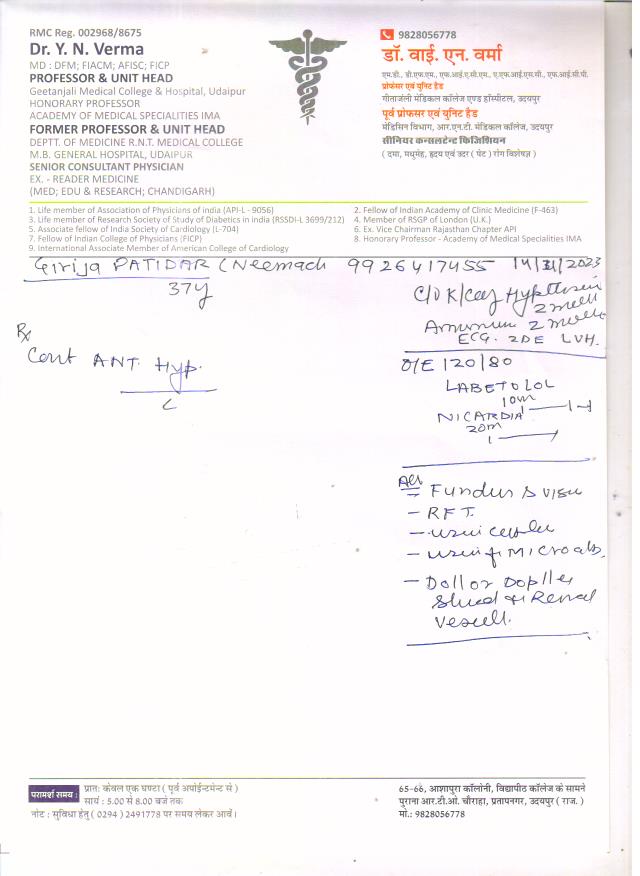 RMC Reg. 002968/8675
Dr. Y. N. Verma
MD : DFM; FIACM; AFISC; FICP
PROFESSOR & UNIT HEAD
Geetanjali Medical College & Hospital, Udaipur
HONORARY PROFESSOR
ACADEMY OF MEDICAL SPECIALITIES IMA
FORMER PROFESSOR & UNIT HEAD
DEPTT. OF MEDICINE R.N.T. MEDICAL COLLEGE
M.B. GENERAL HOSPITAL, UDAIPUR
SENIOR CONSULTANT PHYSICIAN
EX. - READER MEDICINE
(MED; EDU & RESEARCH; CHANDIGARH)
9828056778
डॉ. वाई. एन. वर्मा
एम.डी., डी.एफ.एम., एफ.आई.ए.सी.एम., ए.एफ.आई.एस.सी., एफ.आई.सी.पी.
प्रोफेसर एवं यूनिट हैड
गीतांजली मेडिकल कॉलेज एण्ड हॉस्पीटल, उदयपुर
पूर्व प्रोफेसर एवं यूनिट हैड
मेडिसिन विभाग, आर.एन.टी. मेडिकल कॉलेज, उदयपुर
सीनियर कन्सलटेन्ट फिजिशियन
( दमा, मधुमेह, हृदय एवं उदर ( पेट ) रोग विशेषज्ञ )
1. Life member of Association of Physicians of india (API-L - 9056)
2. Fellow of Indian Academy of Clinic Medicine (F-463)
3. Life member of Research Society of Study of Diabetics in india (RSSDI-L 3699/212)
4. Member of RSGP of London (U.K.)
5. Associate fellow of India Society of Cardiology (L-704)
6. Ex. Vice Chairman Rajasthan Chapter API
7. Fellow of Indian College of Physicians (FICP)
8. Honorary Professor - Academy of Medical Specialities IMA
9. International Associate Member of American College of Cardiology
Girija PATIDAR (Neemach 9926417455
37y
Rx
Cont ANT. Hyp.
2 month
2 month
ECG. 2DE LVH.
O/E 120/80
LABETOLOL
NICARDIA
20m
- Fundus
- RFT.
- Doppler
Renal
परामर्श समय :
प्रातः केवल एक घण्टा ( पूर्व अपोईन्टमेन्ट से )
सायं : 5.00 से 8.00 बजे तक
नोट : सुविधा हेतु ( 0294 ) 2491778 पर समय लेकर आवें।
65-66, आशापुरा कॉलोनी, विद्यापीठ कॉलेज के सामने
पुराना आर.टी.ओ. चौराहा, प्रतापनगर, उदयपुर ( राज. )
मो.: 9828056778